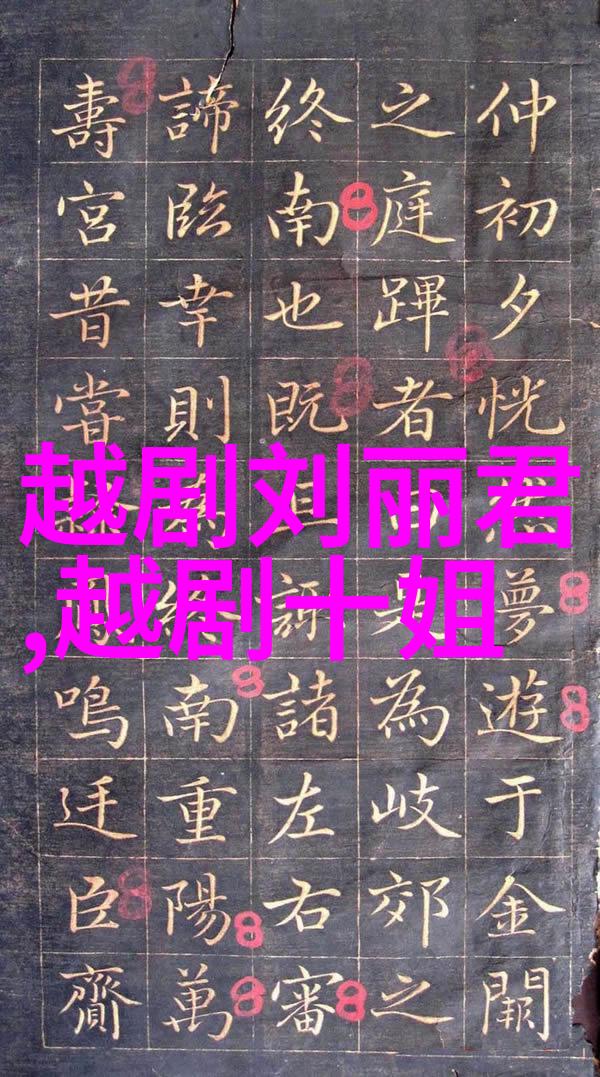 仲初夕恍然夢遊于金闕
之庭蹕者為岐郊之
終南也既旦訝諸左右審
諦臨幸則為終南重陽萬
壽宮昔嘗鳴廷臣齎
越剧刘丽君
,越剧十姐